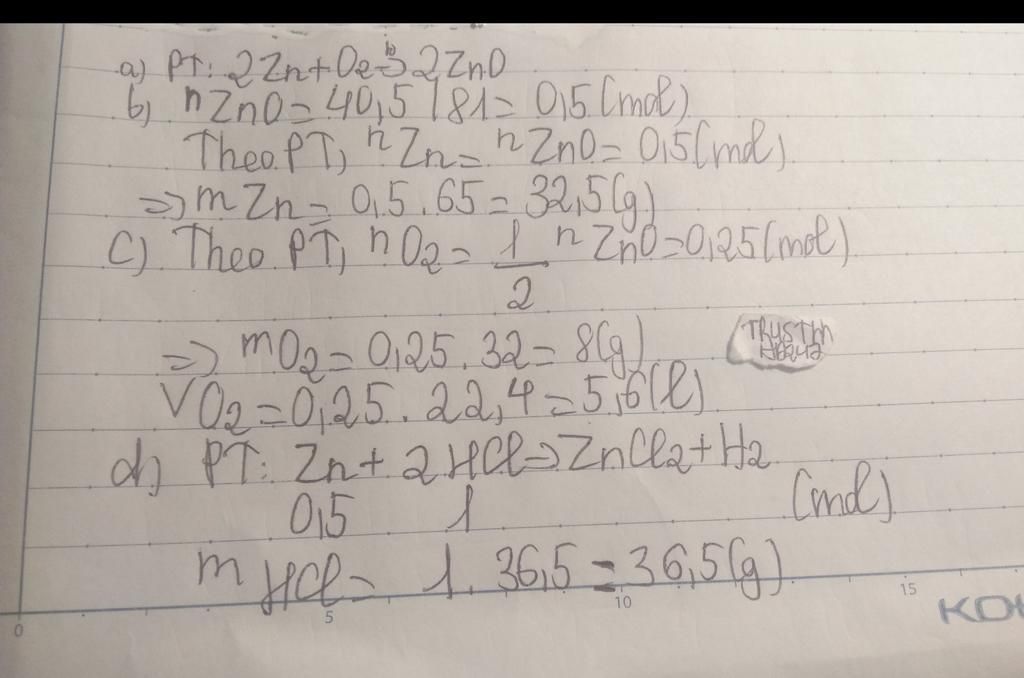 a) PT: 2Zn + O2 → 2ZnO
b) nZnO = 40,5 / 81 = 0,5 (mol)
Theo PT, nZn = nZnO = 0,5 (mol)
=> mZn = 0,5.65 = 32,5 (g)
c) Theo PT, nO2 = 1/2 nZnO = 0,25 (mol)
=> mO2 = 0,25.32 = 8 (g)
VO2 = 0,25.22,4 = 5,6 (l)
d) PT: Zn + 2HCl → ZnCl2 + H2
0,5 1 (mol)
mHCl = 1.36,5 = 36,5 (g)
0 5 10 15